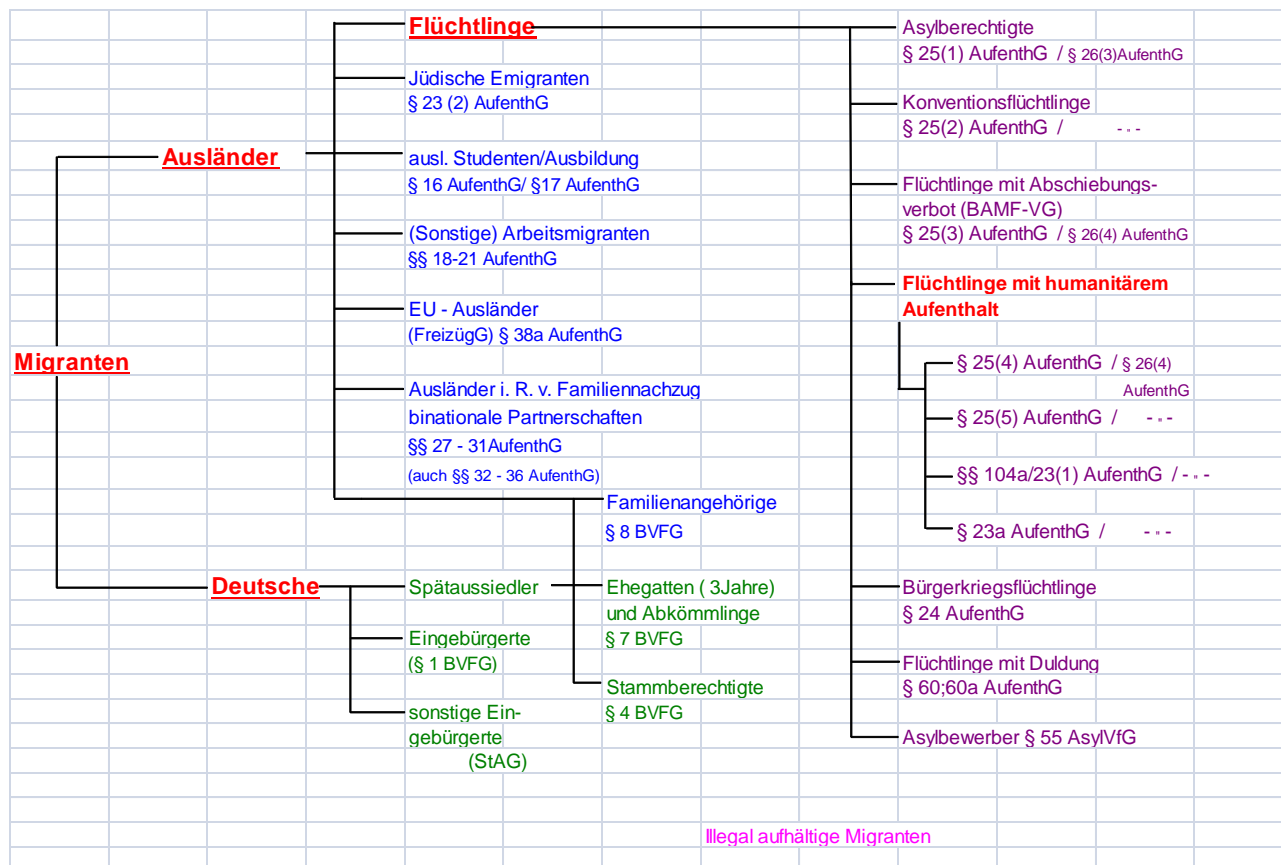 Migranten
Ausländer
Flüchtlinge
Jüdische Emigranten
§ 23 (2) AufenthG
ausl. Studenten/Ausbildung
§ 16 AufenthG/ §17 AufenthG
(Sonstige) Arbeitsmigranten
§§ 18-21 AufenthG
EU - Ausländer
(FreizügG) § 38a AufenthG
Ausländer i. R. v. Familiennachzug
binationale Partnerschaften
§§ 27 - 31AufenthG
(auch §§ 32 - 36 AufenthG)
Familienangehörige
§ 8 BVFG
Deutsche
Spätaussiedler
Ehegatten ( 3Jahre)
und Abkömmlinge
§ 7 BVFG
Stammberechtigte
§ 4 BVFG
Eingebürgerte
(§ 1 BVFG)
sonstige Ein-
gebürgerte
(StAG)
Asylberechtigte
§ 25(1) AufenthG / § 26(3)AufenthG
Konventionsflüchtlinge
§ 25(2) AufenthG / - " -
Flüchtlinge mit Abschiebungs-
verbot (BAMF-VG)
§ 25(3) AufenthG / § 26(4) AufenthG
Flüchtlinge mit humanitärem
Aufenthalt
§ 25(4) AufenthG / § 26(4)
AufenthG
§ 25(5) AufenthG / - " -
§§ 104a/23(1) AufenthG / - " -
§ 23a AufenthG / - " -
Bürgerkriegsflüchtlinge
§ 24 AufenthG
Flüchtlinge mit Duldung
§ 60;60a AufenthG
Asylbewerber § 55 AsylVfG
Illegal aufhältige Migranten